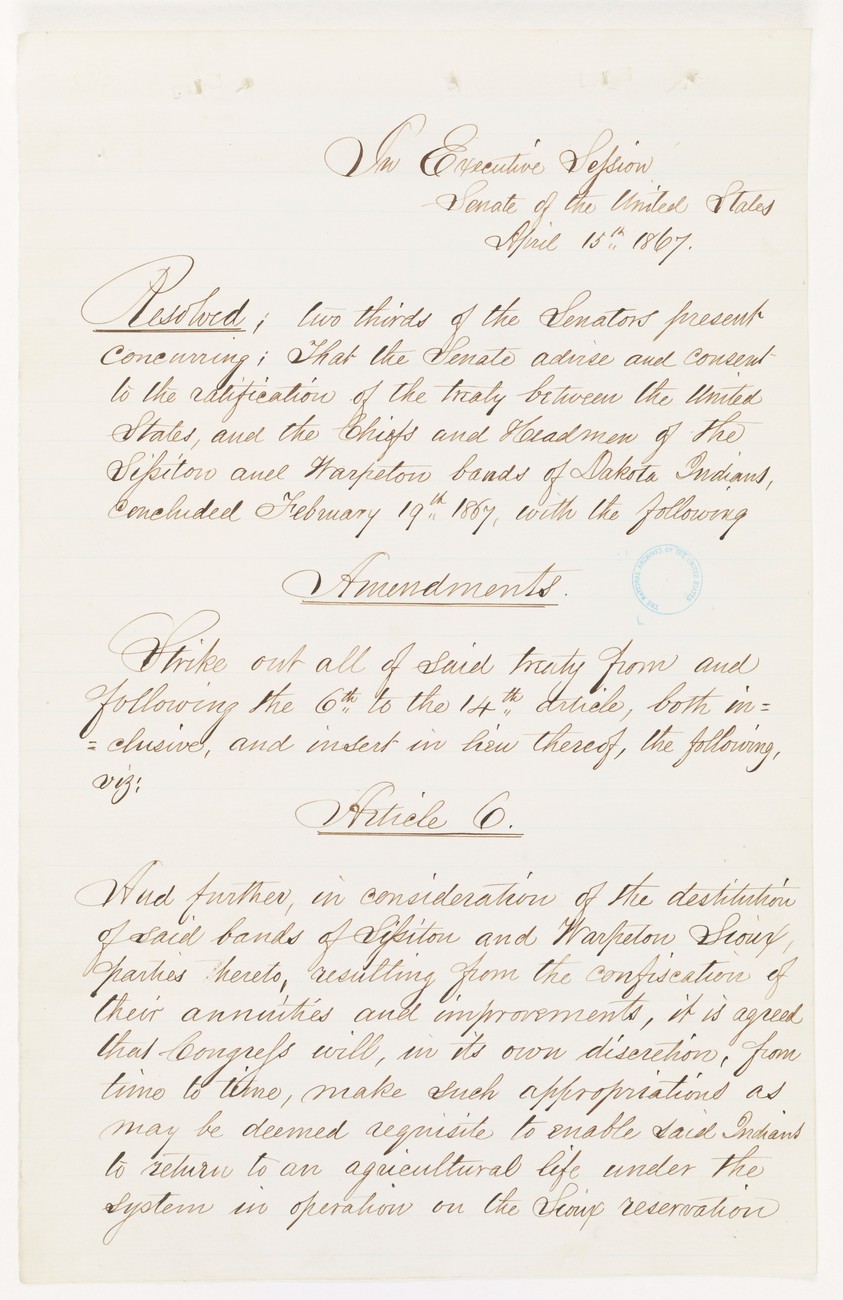 In Executive Session
Senate of the United States
April 15th 1867.
Resolved; two thirds of the Senators present
concurring; That the Senate advise and consent
to the ratification of the treaty between the United
States, and the Chiefs and Headmen of the
Sissiton and Warpeton bands of Dakota Indians,
concluded February 19th 1867, with the following
Amendments.
THE NATIONAL ARCHIVES OF THE UNITED STATES
Strike out all of said treaty from and
following the 6th to the 14th article, both in=
=clusive, and insert in lieu thereof, the following,
viz:
Article 6.
And further, in consideration of the destitution
of said bands of Sissiton and Warpeton Sioux,
parties hereto, resulting from the confiscation of
their annuities and improvements, it is agreed
that Congress will, in its own discretion, from
time to time, make such appropriations as
may be deemed requisite to enable said Indians
to return to an agricultural life under the
system in operation on the Sioux reservation